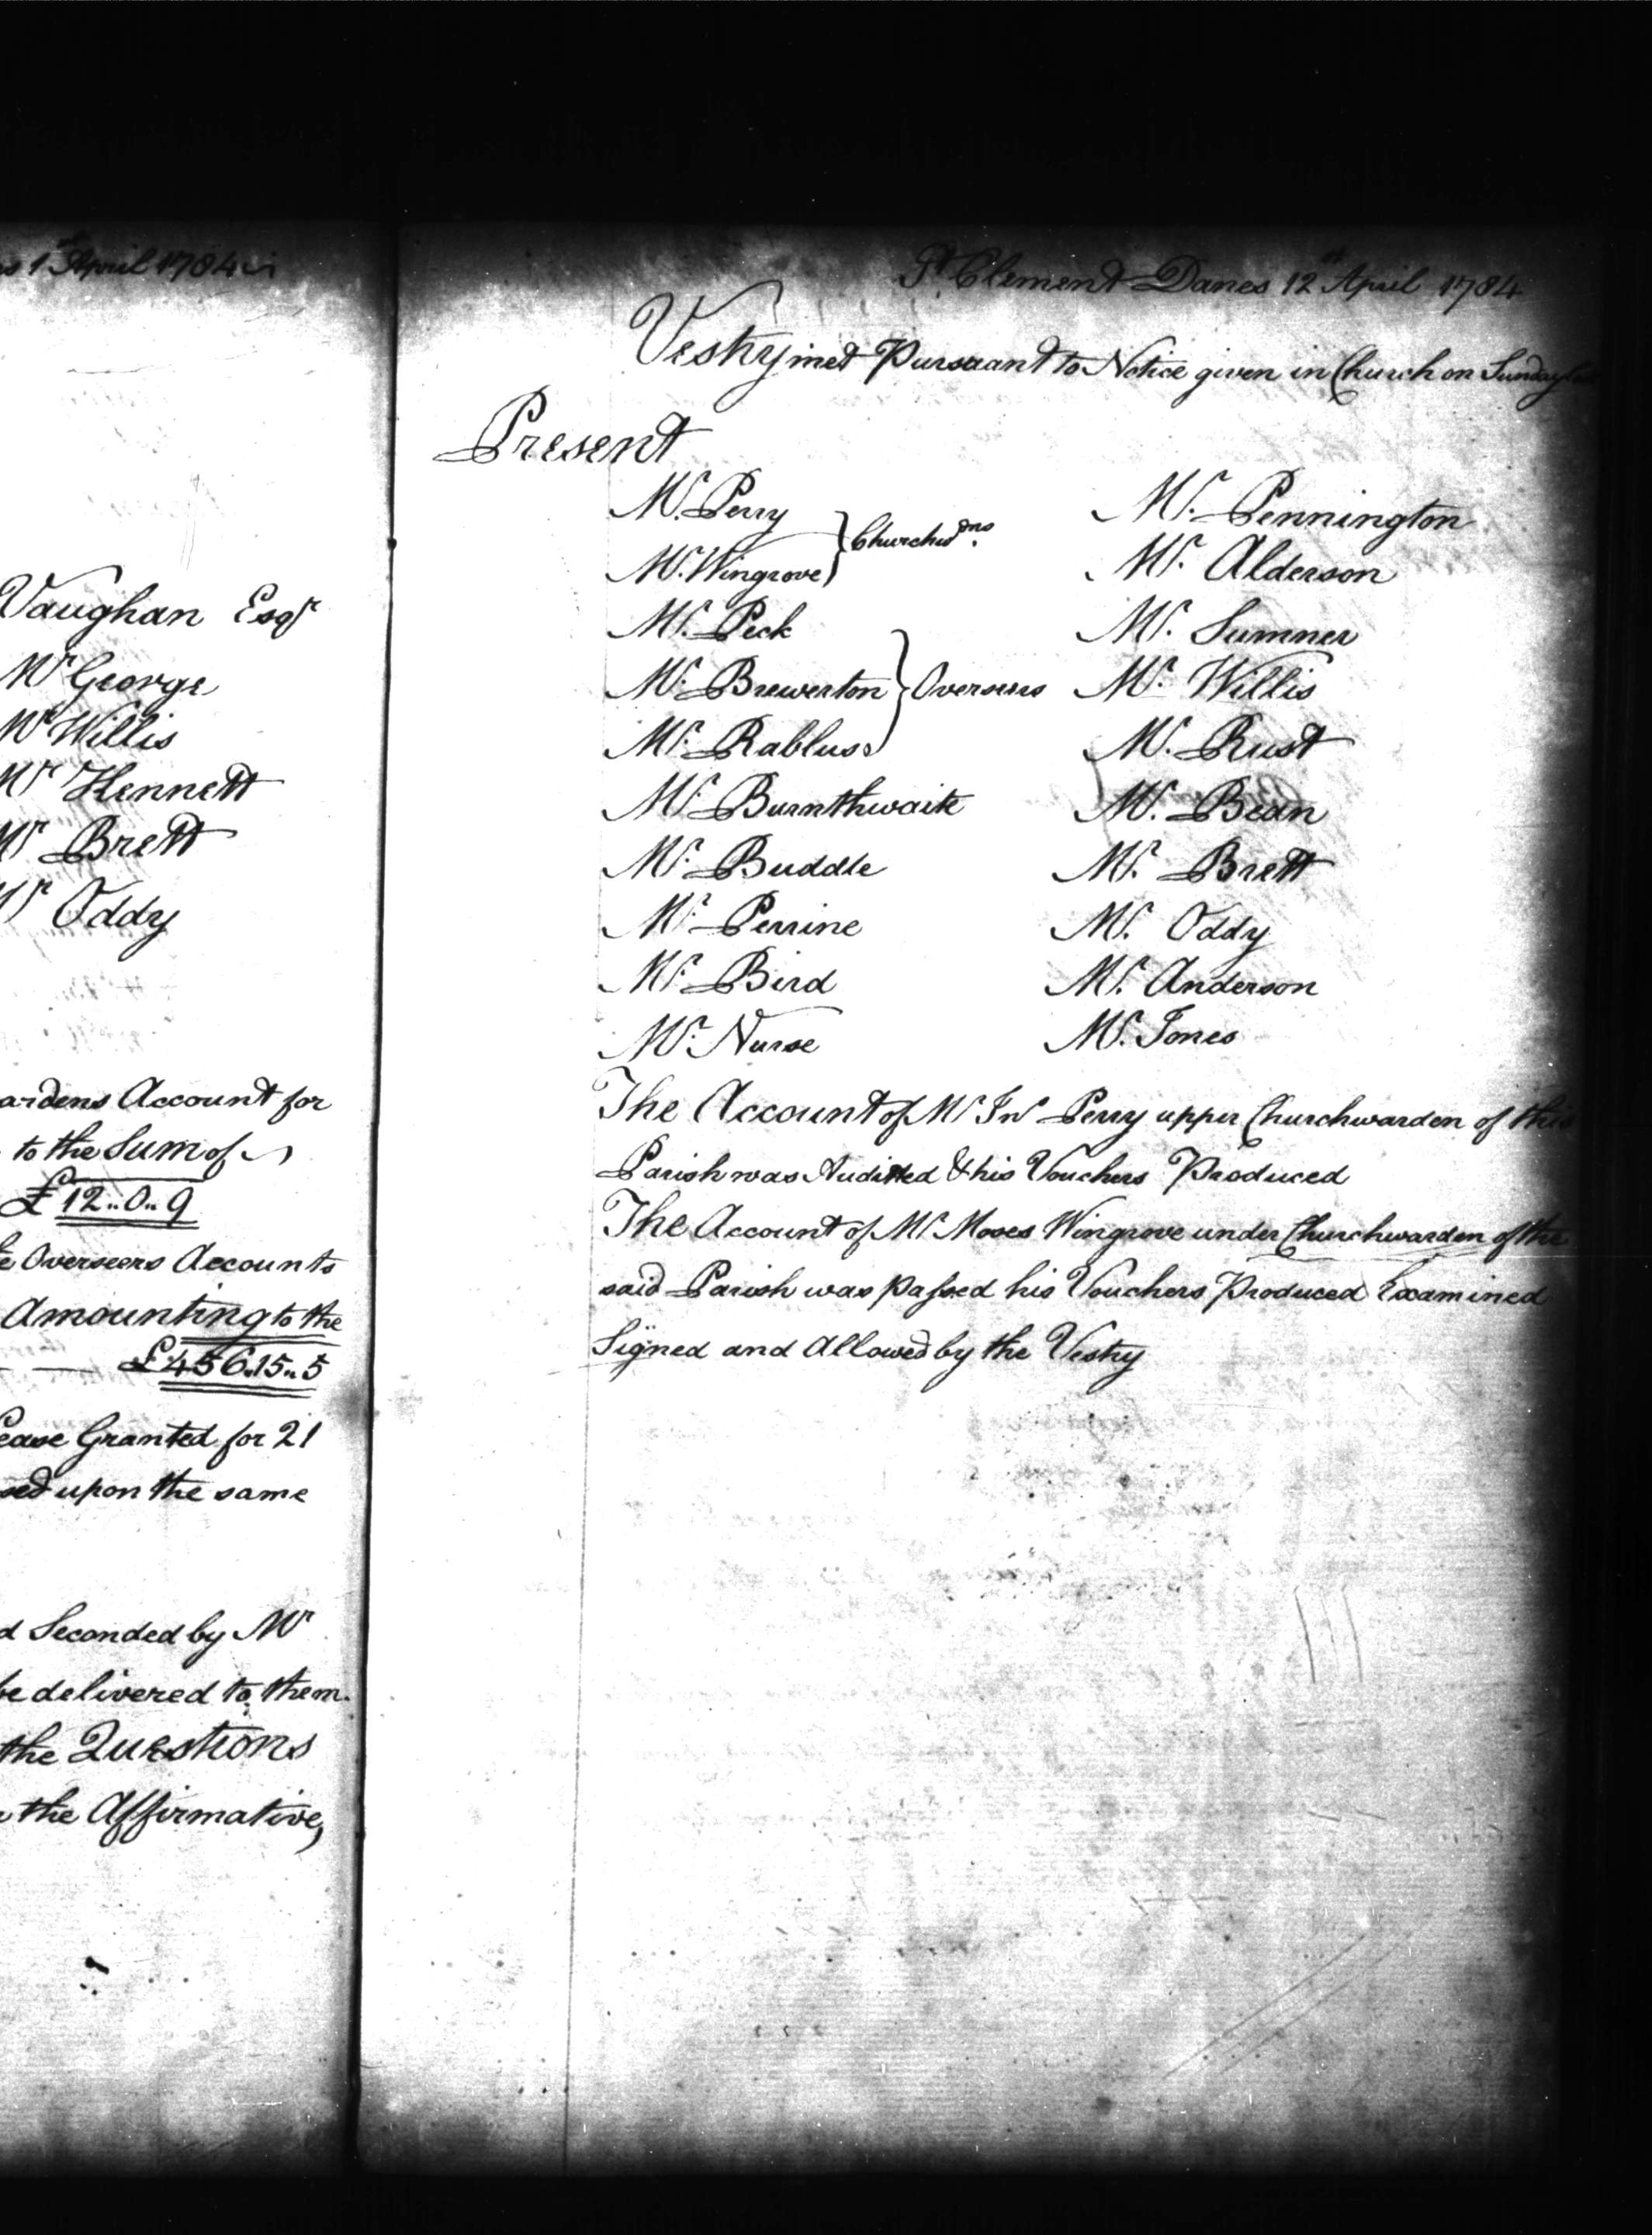 1st April 1784
Vaughan Esqr
Mr George
Mr Willis
Mr Hennett
Mr Brett
Mr Oddy
ardens Account for
to the Sum of
£12..0..9
Overseers Accounts
Amounting to the
£456..15..5
ease Granted for 21
sed upon the same
d Seconded by Mr
be delivered to them.
the Questions
the Affirmative,
St. Clement Danes 12th April 1784
Vestry met Pursuant to Notice given in Church on Sunday
Present
Mr. Perry
Churchwdns.
Mr. Wingrove
Mr. Peck
Mr. Brewerton Overseers
Mr. Rabluss
Mr. Burnthwaite
Mr. Buddle
Mr. Perrine
Mr. Bird
Mr. Nurse
Mr. Pennington
Mr. Alderson
Mr. Sumner
Mr. Willis
Mr. Rust
Mr. Bean
Mr. Brett
Mr. Oddy
Mr. Anderson
Mr. Jones
The Account of Mr Jno Perry upper Churchwarden of this
Parish was Auditted & his Vouchers Produced
The Account of Mr. Moses Wingrove under Churchwarden of the
said Parish was passed his Vouchers Produced Examined
Signed and Allowed by the Vestry